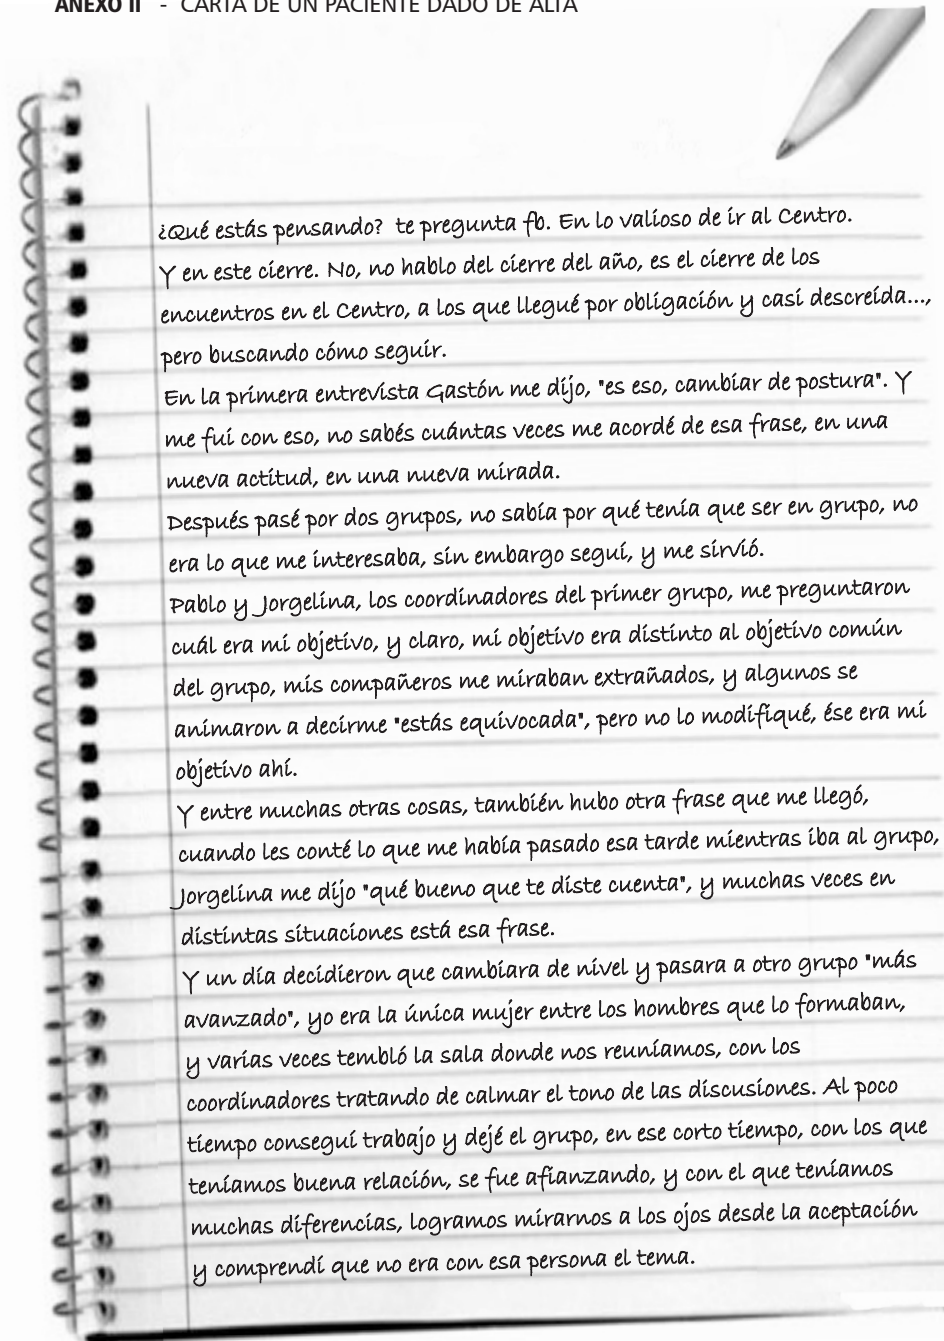 ANEXO II - CARTA DE UN PACIENTE DADO DE ALTA
¿Qué estás pensando? te pregunta fb. En lo valioso de ir al Centro.
Y en este cierre. No, no hablo del cierre del año, es el cierre de los
encuentros en el Centro, a los que llegué por obligación y casi descreída...,
pero buscando cómo seguir.
En la primera entrevista Gastón me dijo, "es eso, cambiar de postura". Y
me fui con eso, no sabés cuántas veces me acordé de esa frase, en una
nueva actitud, en una nueva mirada.
Después pasé por dos grupos, no sabía por qué tenía que ser en grupo, no
era lo que me interesaba, sin embargo seguí, y me sirvió.
Pablo y Jorgelina, los coordinadores del primer grupo, me preguntaron
cuál era mi objetivo, y claro, mi objetivo era distinto al objetivo común
del grupo, mis compañeros me miraban extrañados, y algunos se
animaron a decirme "estás equivocada", pero no lo modifiqué, ése era mi
objetivo ahí.
Y entre muchas otras cosas, también hubo otra frase que me llegó,
cuando les conté lo que me había pasado esa tarde mientras iba al grupo,
Jorgelina me dijo "qué bueno que te diste cuenta", y muchas veces en
distintas situaciones está esa frase.
Y un día decidieron que cambiara de nivel y pasara a otro grupo "más
avanzado", yo era la única mujer entre los hombres que lo formaban,
y varias veces tembló la sala donde nos reuníamos, con los
coordinadores tratando de calmar el tono de las discusiones. Al poco
tiempo conseguí trabajo y dejé el grupo, en ese corto tiempo, con los que
teníamos buena relación, se fue afianzando, y con el que teníamos
muchas diferencias, logramos mirarnos a los ojos desde la aceptación
y comprendí que no era con esa persona el tema.